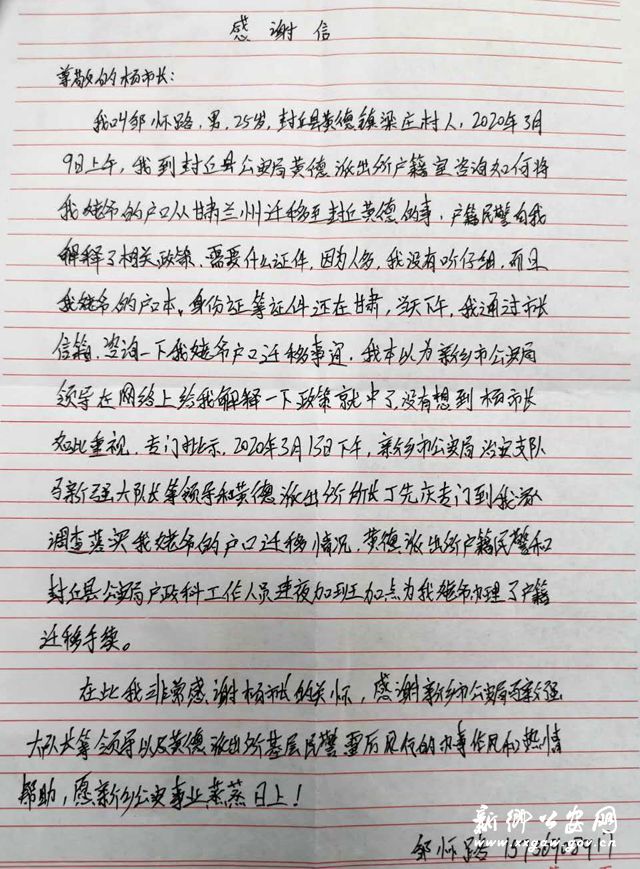 感谢信
尊敬的杨市长：
我叫邹怀路，男，25岁，封丘县黄德镇梁庄村人，2020年3月
9日上午，我到封丘县公安局黄德派出所户籍室咨询如何将
我媳妇的户口从甘肃兰州迁移至封丘黄德的事，户籍民警向我
解释了相关政策、需要什么证件，因为人多，我没有听仔细，而且
我媳妇的户口本、身份证等证件还在甘肃，当天下午，我通过市长
信箱，咨询一下我媳妇户口迁移事宜，我本以为新乡市公安局
领导在网络上给我解释一下政策就中了，没有想到杨市长
如此重视，专门批示，2020年3月13日下午，新乡市公安局治安支队
马新强大队长等领导和黄德派出所所长丁先庆专门到我家
调查落实我媳妇的户口迁移情况，黄德派出所户籍民警和
封丘县公安局户政科工作人员连夜加班加点为我媳妇办理了户籍
迁移手续。
在此我非常感谢杨市长的关怀，感谢新乡市公安局马新强
大队长等领导以及黄德派出所基层民警雷厉风行的办事作风和热情
帮助，愿新乡公安事业蒸蒸日上！
邹怀路
新乡公安网
www.xxga.gov.cn